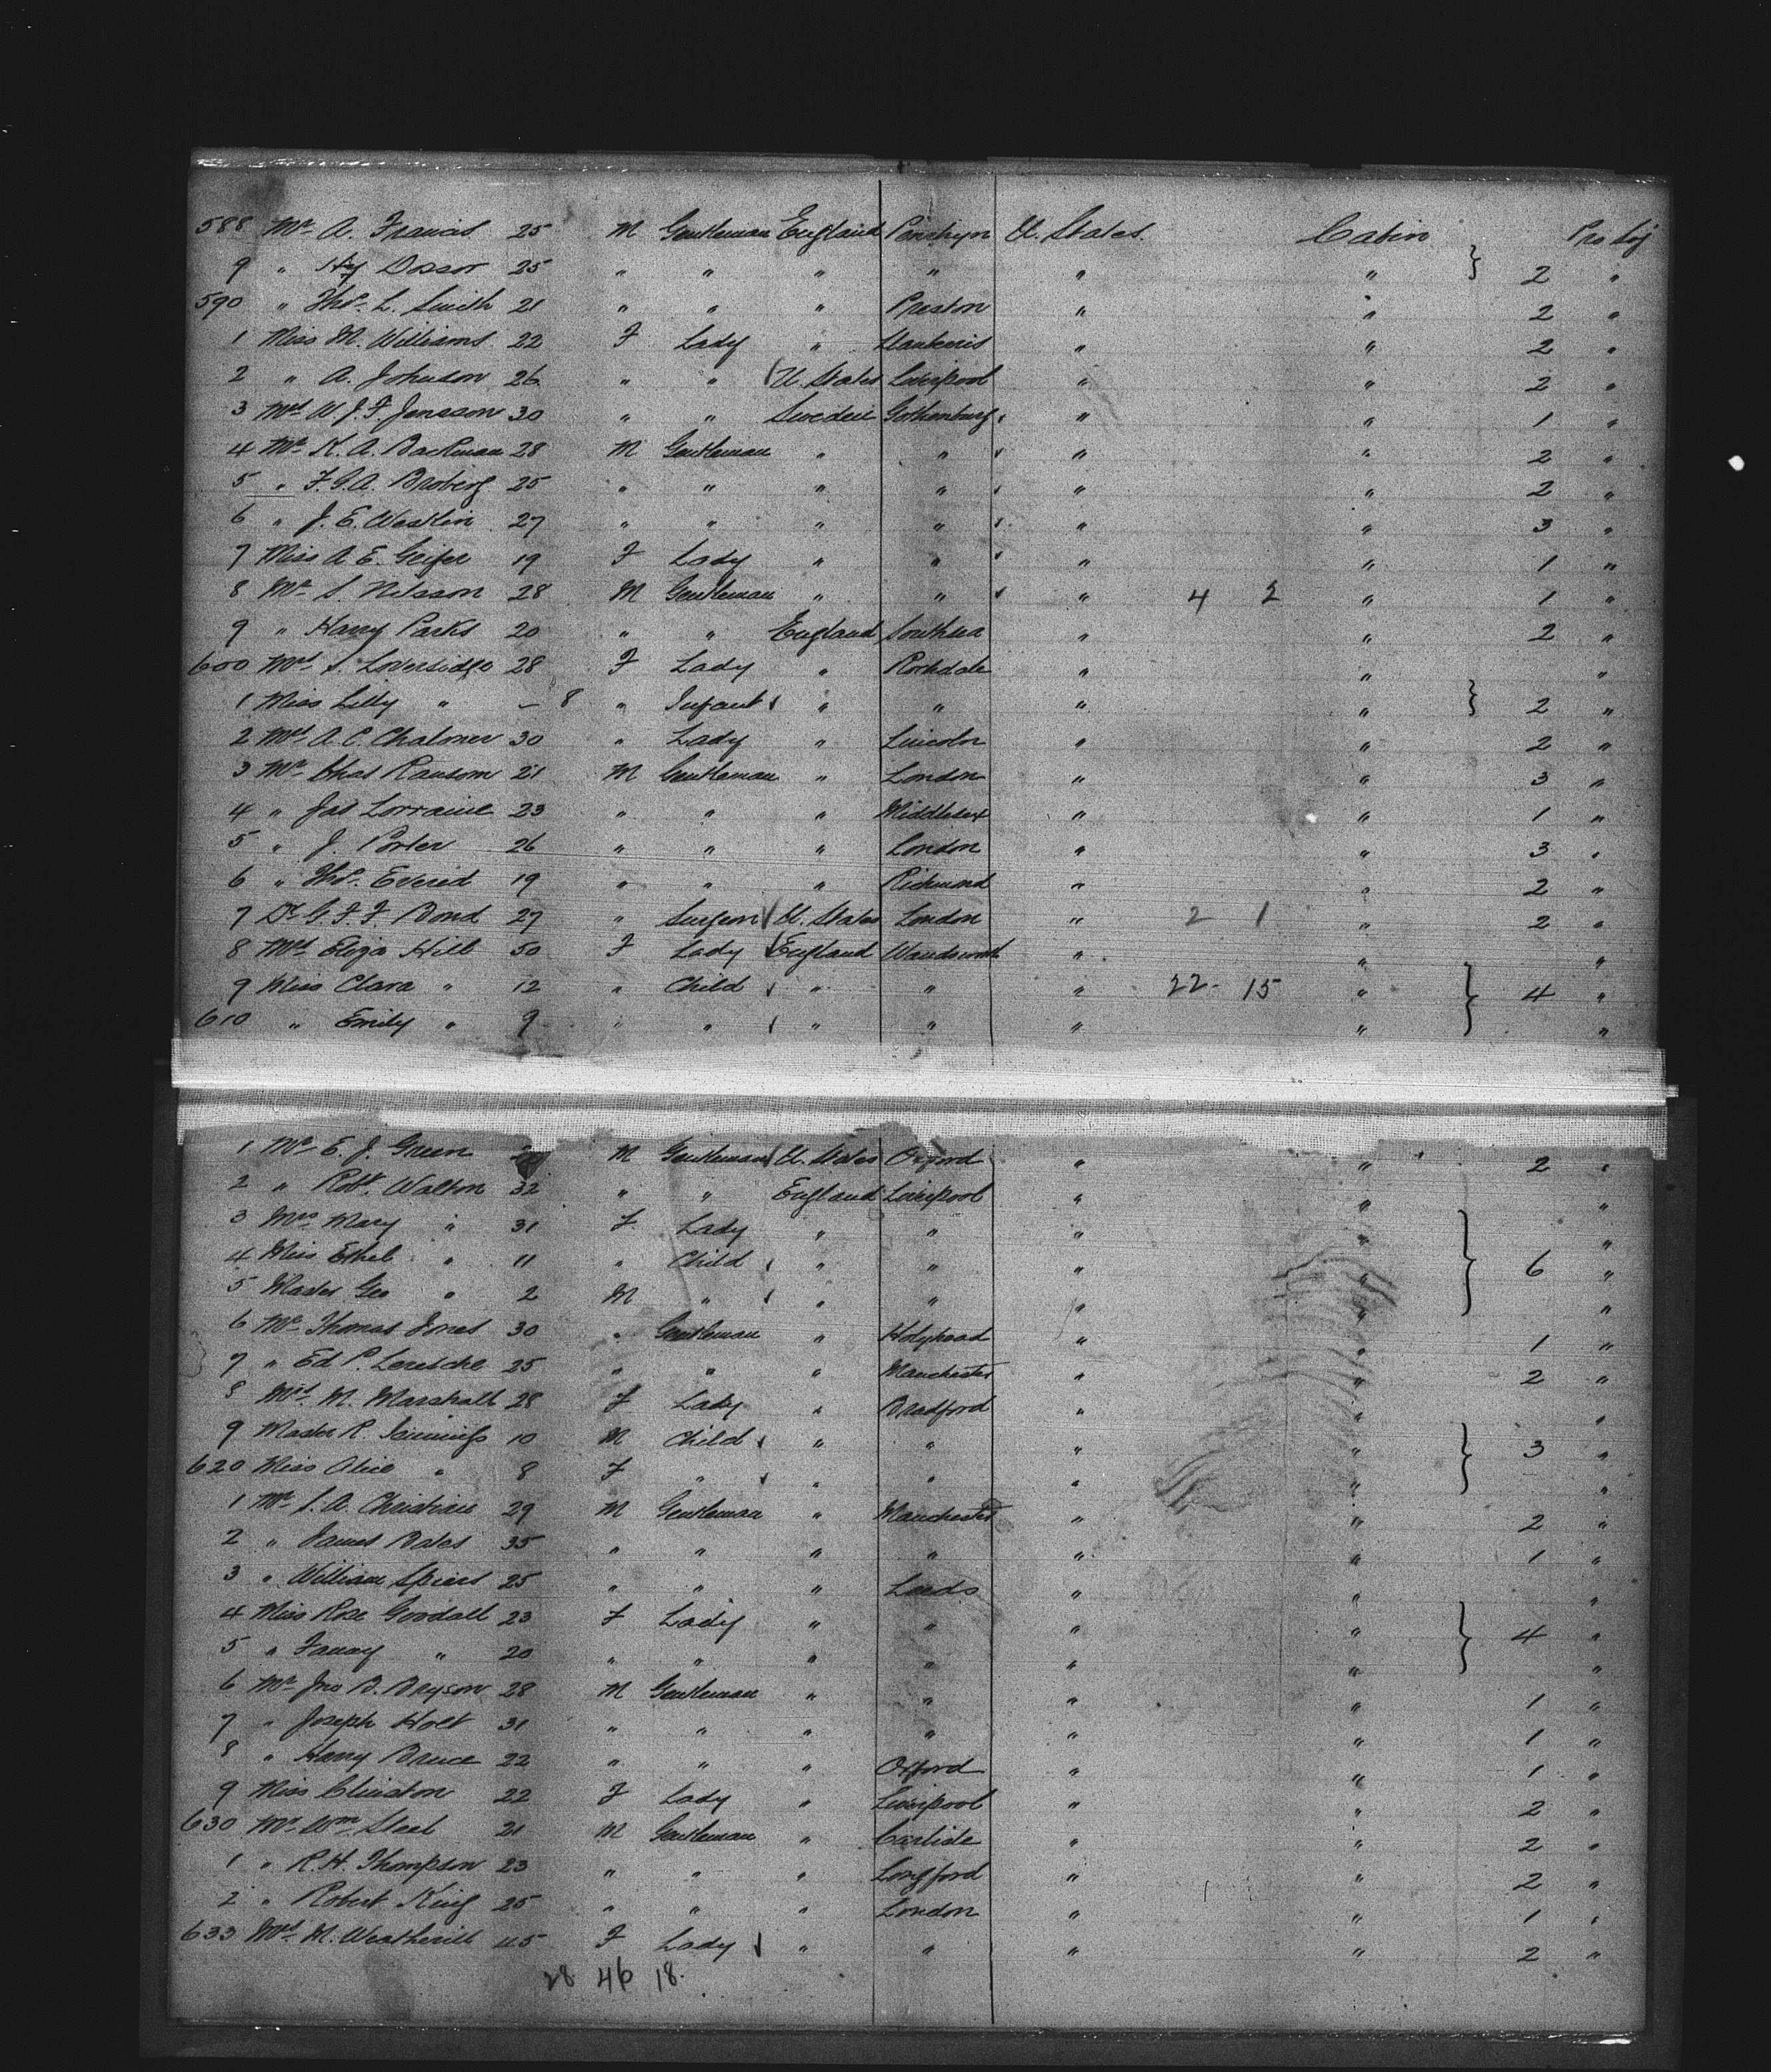 588 Mr A. Francis 25 M Gentleman England Penrhyn U. States. Cabin Pro Soj
9 " Hy Dosser 25 " " " " " " } 2 "
590 " Thos. L. Smith 21 " " " Preston " " 2 "
1 Miss M. Williams 22 F Lady " " " 2 "
2 " A. Johnson 26 " " U. States Liverpool " " 2 "
3 Mrs W. J. F. Jonsson 30 " " Sweden Gothenburg " " 1 "
4 Mr K. A. Backman 28 M Gentleman " " " " 2 "
5 " F. G. A. Broberg 25 " " " " " " 2 "
6 " J. E. Westlin 27 " " " " " " 3 "
7 Miss A. E. Geijer 19 F Lady " " " " 1 "
8 Mr S. Nilsson 28 M Gentleman " " " 4 2 " 1 "
9 " Harry Parks 20 " " England Southsea " " 2 "
600 Mrs S. Loversidge 28 F Lady " Rochdale " " "
1 Miss Lilly " – 8 " Infant " " " " } 2 "
2 Mrs A. C. Chaloner 30 " Lady " Lincoln " " 2 "
3 Mr Chas Ransom 21 M Gentleman " London " " 3 "
4 " Jas Lorraine 23 " " " Middlesex " " 1 "
5 " J. Porter 26 " " " London " " 3 "
6 " Thos. Evered 19 " " " Richmond " " 2 "
7 Dr G. F. F. Bond 27 " Surgeon U. States London " 2 1 " 2 "
8 Mrs Eliza Hill 50 F Lady England Wandsworth " " "
9 Miss Clara " 12 " Child " " " 22 - 15 " } 4 "
610 " Emily " 9 " " " " " " "
1 Mr E. J. Green M Gentleman U. States Oxford " " 2 "
2 " Robt. Walton 32 " " England Liverpool " " "
3 Mrs Mary " 31 F Lady " " " " "
4 Miss Ethel " 11 " Child " " " " } 6 "
5 Master Geo " 2 M " " " " " "
6 Mr Thomas Jones 30 " Gentleman " Holyhead " " 1 "
7 " Ed P. 25 " " " Manchester " " 2 "
8 Mrs M. Marshall 28 F Lady " Bradford " " "
9 Master R. Jennings 10 M Child " " " " } 3 "
620 Miss Alice " 8 F " " " " " "
1 Mr S. A. Christian 29 M Gentleman " Manchester " " 2 "
2 " James Bates 35 " " " " " " 1 "
3 " William Spiers 25 " " " Leeds " " "
4 Miss Rose Goodall 23 F Lady " " " " } 4 "
5 " Fanny " 20 " " " " " " "
6 Mr Jno B. Bryson 28 M Gentleman " " " " 1 "
7 " Joseph Holt 31 " " " " " " 1 "
8 " Harry Bruce 22 " " " Oxford " " 1 "
9 Miss Clinston 22 F Lady " Liverpool " " 2 "
630 Mr Wm. Steel 21 M Gentleman " Carlisle " " 2 "
1 " R. H. Thompson 23 " " " Longford " " 2 "
2 " Robert King 25 " " " London " " 1 "
633 Mrs M. Weatherill 45 F Lady " " " " 2 "
28 46 18.